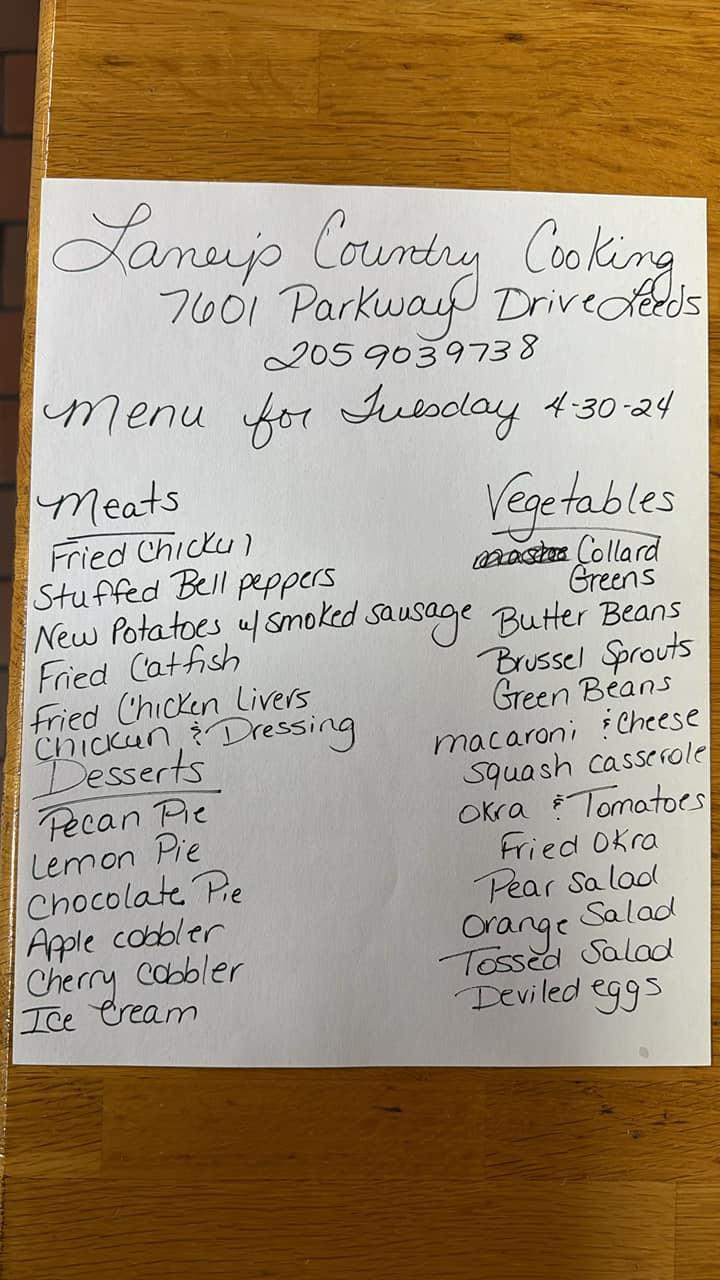 Laney's Country Cooking
7601 Parkway Drive Leeds
205 903 9738
Menu for Tuesday 4-30-24
Meats
Fried Chicken
Stuffed Bell peppers
New Potatoes w/ smoked sausage
Fried Catfish
Fried Chicken Livers
Chicken & Dressing
Desserts
Pecan Pie
Lemon Pie
Chocolate Pie
Apple cobbler
Cherry cobbler
Ice cream
Vegetables
Collard
Greens
Butter Beans
Brussel Sprouts
Green Beans
macaroni & cheese
squash casserole
Okra & Tomatoes
Fried Okra
Pear Salad
Orange Salad
Tossed Salad
Deviled eggs